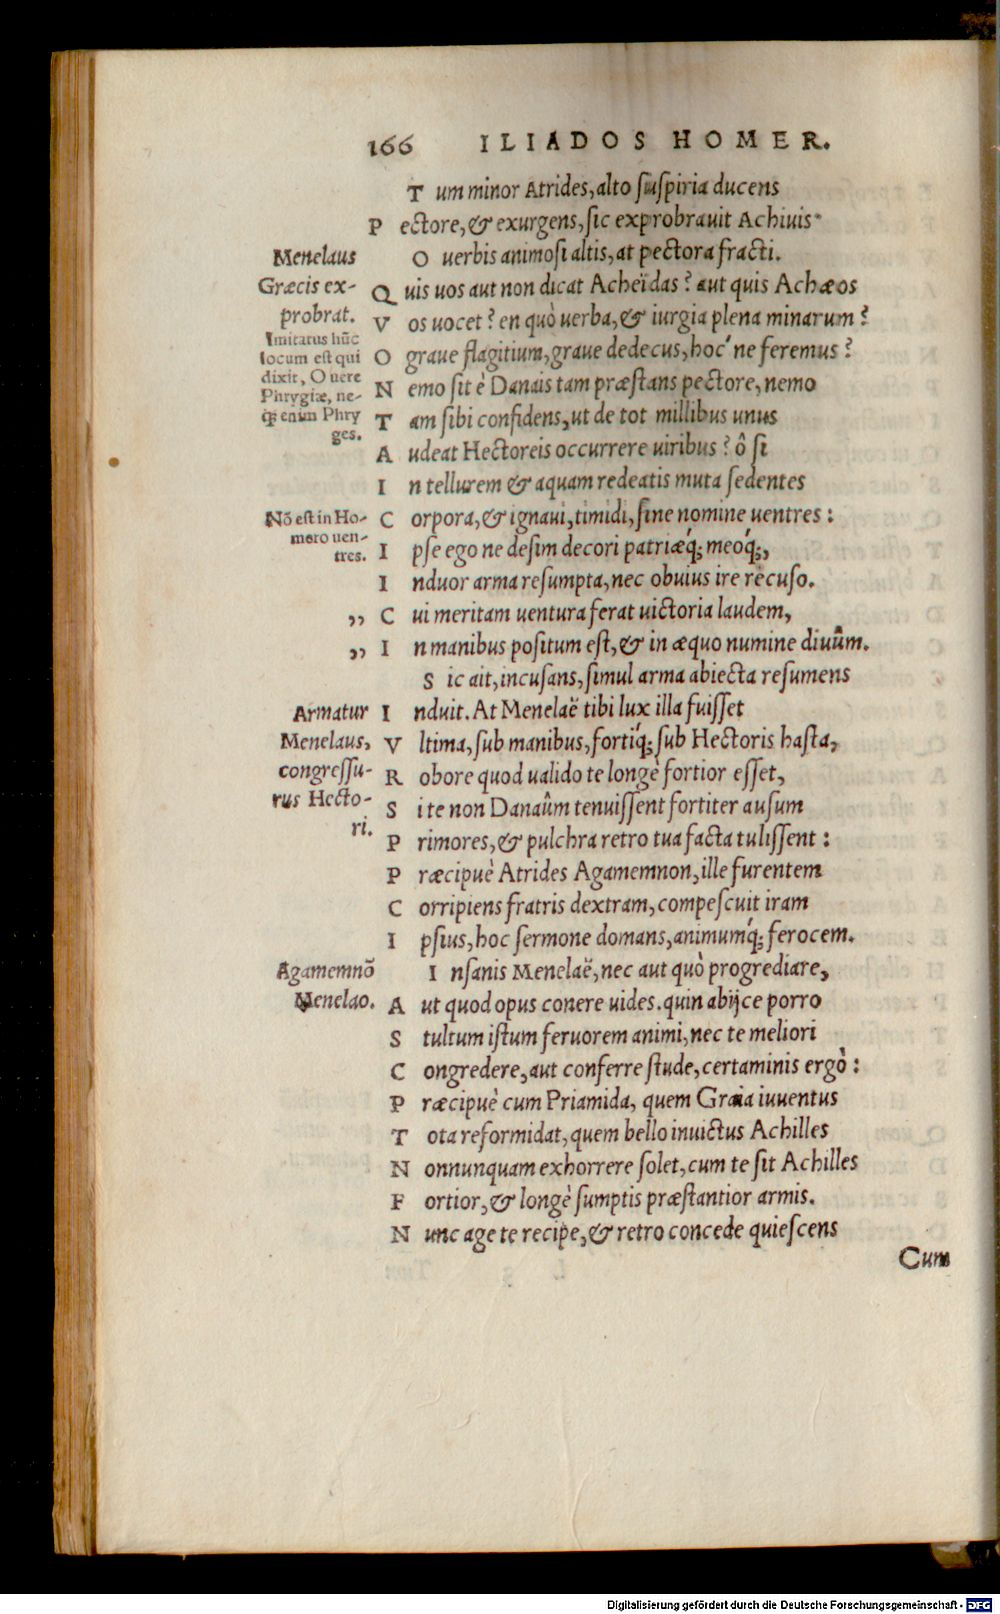 166 ILIADOS HOMER.
Tum minor Atrides, alto suspiria ducens
Pectore, & exurgens, sic exprobrauit Achiuis.
O uerbis animosi altis, at pectora fracti.
Quis uos aut non dicat Acheïdas? aut quis Achæos
Vos uocet? en quò uerba, & iurgia plena minarum?
O graue flagitium, graue dedecus, hoc' ne feremus?
Nemo sit è Danais tam præstans pectore, nemo
Tam sibi confidens, ut de tot millibus unus
Audeat Hectoreis occurrere uiribus? ô si
In tellurem & aquam redeatis muta sedentes
Corpora, & ignaui, timidi, sine nomine uentres:
Ipse ego ne desim decori patriæq́; meoq́;,
Induor arma resumpta, nec obuius ire recuso.
„ Cui meritam uentura ferat uictoria laudem,
„ In manibus positum est, & in æquo numine diuûm.
Sic ait, incusans, simul arma abiecta resumens
Induit. At Menelaë tibi lux illa fuisset
Vltima, sub manibus, fortiq́; sub Hectoris hasta,
Robore quod ualido te longè fortior esset,
Si te non Danaûm tenuissent fortiter ausum
Primores, & pulchra retro tua facta tulissent:
Præcipuè Atrides Agamemnon, ille furentem
Corripiens fratris dextram, compescuit iram
Ipsius, hoc sermone domans, animumq́; ferocem.
Insanis Menelaë, nec aut quò progrediare,
Aut quod opus conere uides. quin abijce porro
Stultum istum feruorem animi, nec te meliori
Congredere, aut conferre stude, certaminis ergò:
Præcipuè cum Priamida, quem Graia iuuentus
Tota reformidat, quem bello inuictus Achilles
Nonnunquam exhorrere solet, cum te sit Achilles
Fortior, & longè sumptis præstantior armis.
Nunc age te recipe, & retro concede quiescens
Cum
Menelaus
Græcis ex-
probrat.
Imitatus hũc
locum est qui
dixit, O uere
Phrygiæ, ne-
q; enim Phry
ges.
Nõ est in Ho-
mero uen-
tres.
Armatur
Menelaus,
congressu-
rus Hecto-
ri.
Agamemnõ
Menelao.
Digitalisierung gefördert durch die Deutsche Forschungsgemeinschaft - DFG